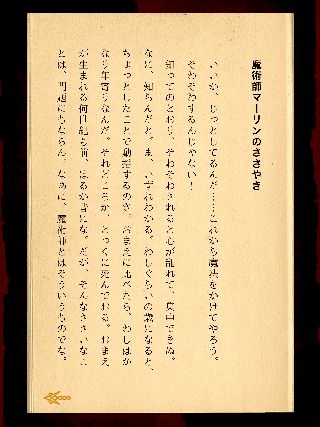 魔術師マーリンのささやき
いいか、じっとしてるんだ……これから魔法をかけてやろう。
そわそわするんじゃない！
知ってのとおり、そわそわされると心が乱れて、集中できぬ。
なに、知らんだと。ま、いずれわかる。わしぐらいの歳になると、
ちょっとしたことで動揺するのさ。おまえに比べたら、わしはか
なり年寄りなんだ。それどころか、とっくに死んでおる。おまえ
が生まれる何百世紀も前、はるか昔にな。だが、そんなささいなこ
とは、問題にもならん。なぜに、魔術師とはそういうものでな。